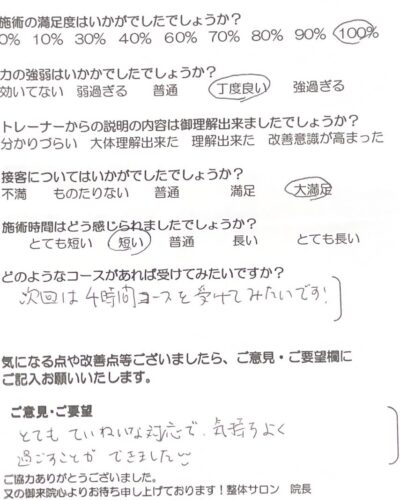 施術の満足度はいかがでしたでしょうか？
0% 10% 30% 40% 60% 70% 80% 90% 100%
力の強弱はいかかでしたでしょうか？
効いてない 弱過ぎる 普通 丁度良い 強過ぎる
トレーナーからの説明の内容は御理解出来ましたでしょうか？
分かりづらい 大体理解出来た 理解出来た 改善意識が高まった
接客についてはいかがでしたでしょうか？
不満 ものたりない 普通 満足 大満足
施術時間はどう感じられましたでしょうか？
とても短い 短い 普通 長い とても長い
どのようなコースがあれば受けてみたいですか？
次回は4時間コースを受けてみたいです!
気になる点や改善点等ございましたら、ご意見・ご要望欄に
ご記入お願いいたします。
ご意見・ご要望
とてもていねいな対応で、気持ちよく
過ごすことができました
ご協力ありがとうございました。
又の御来院心よりお待ち申し上げております！整体サロン 院長